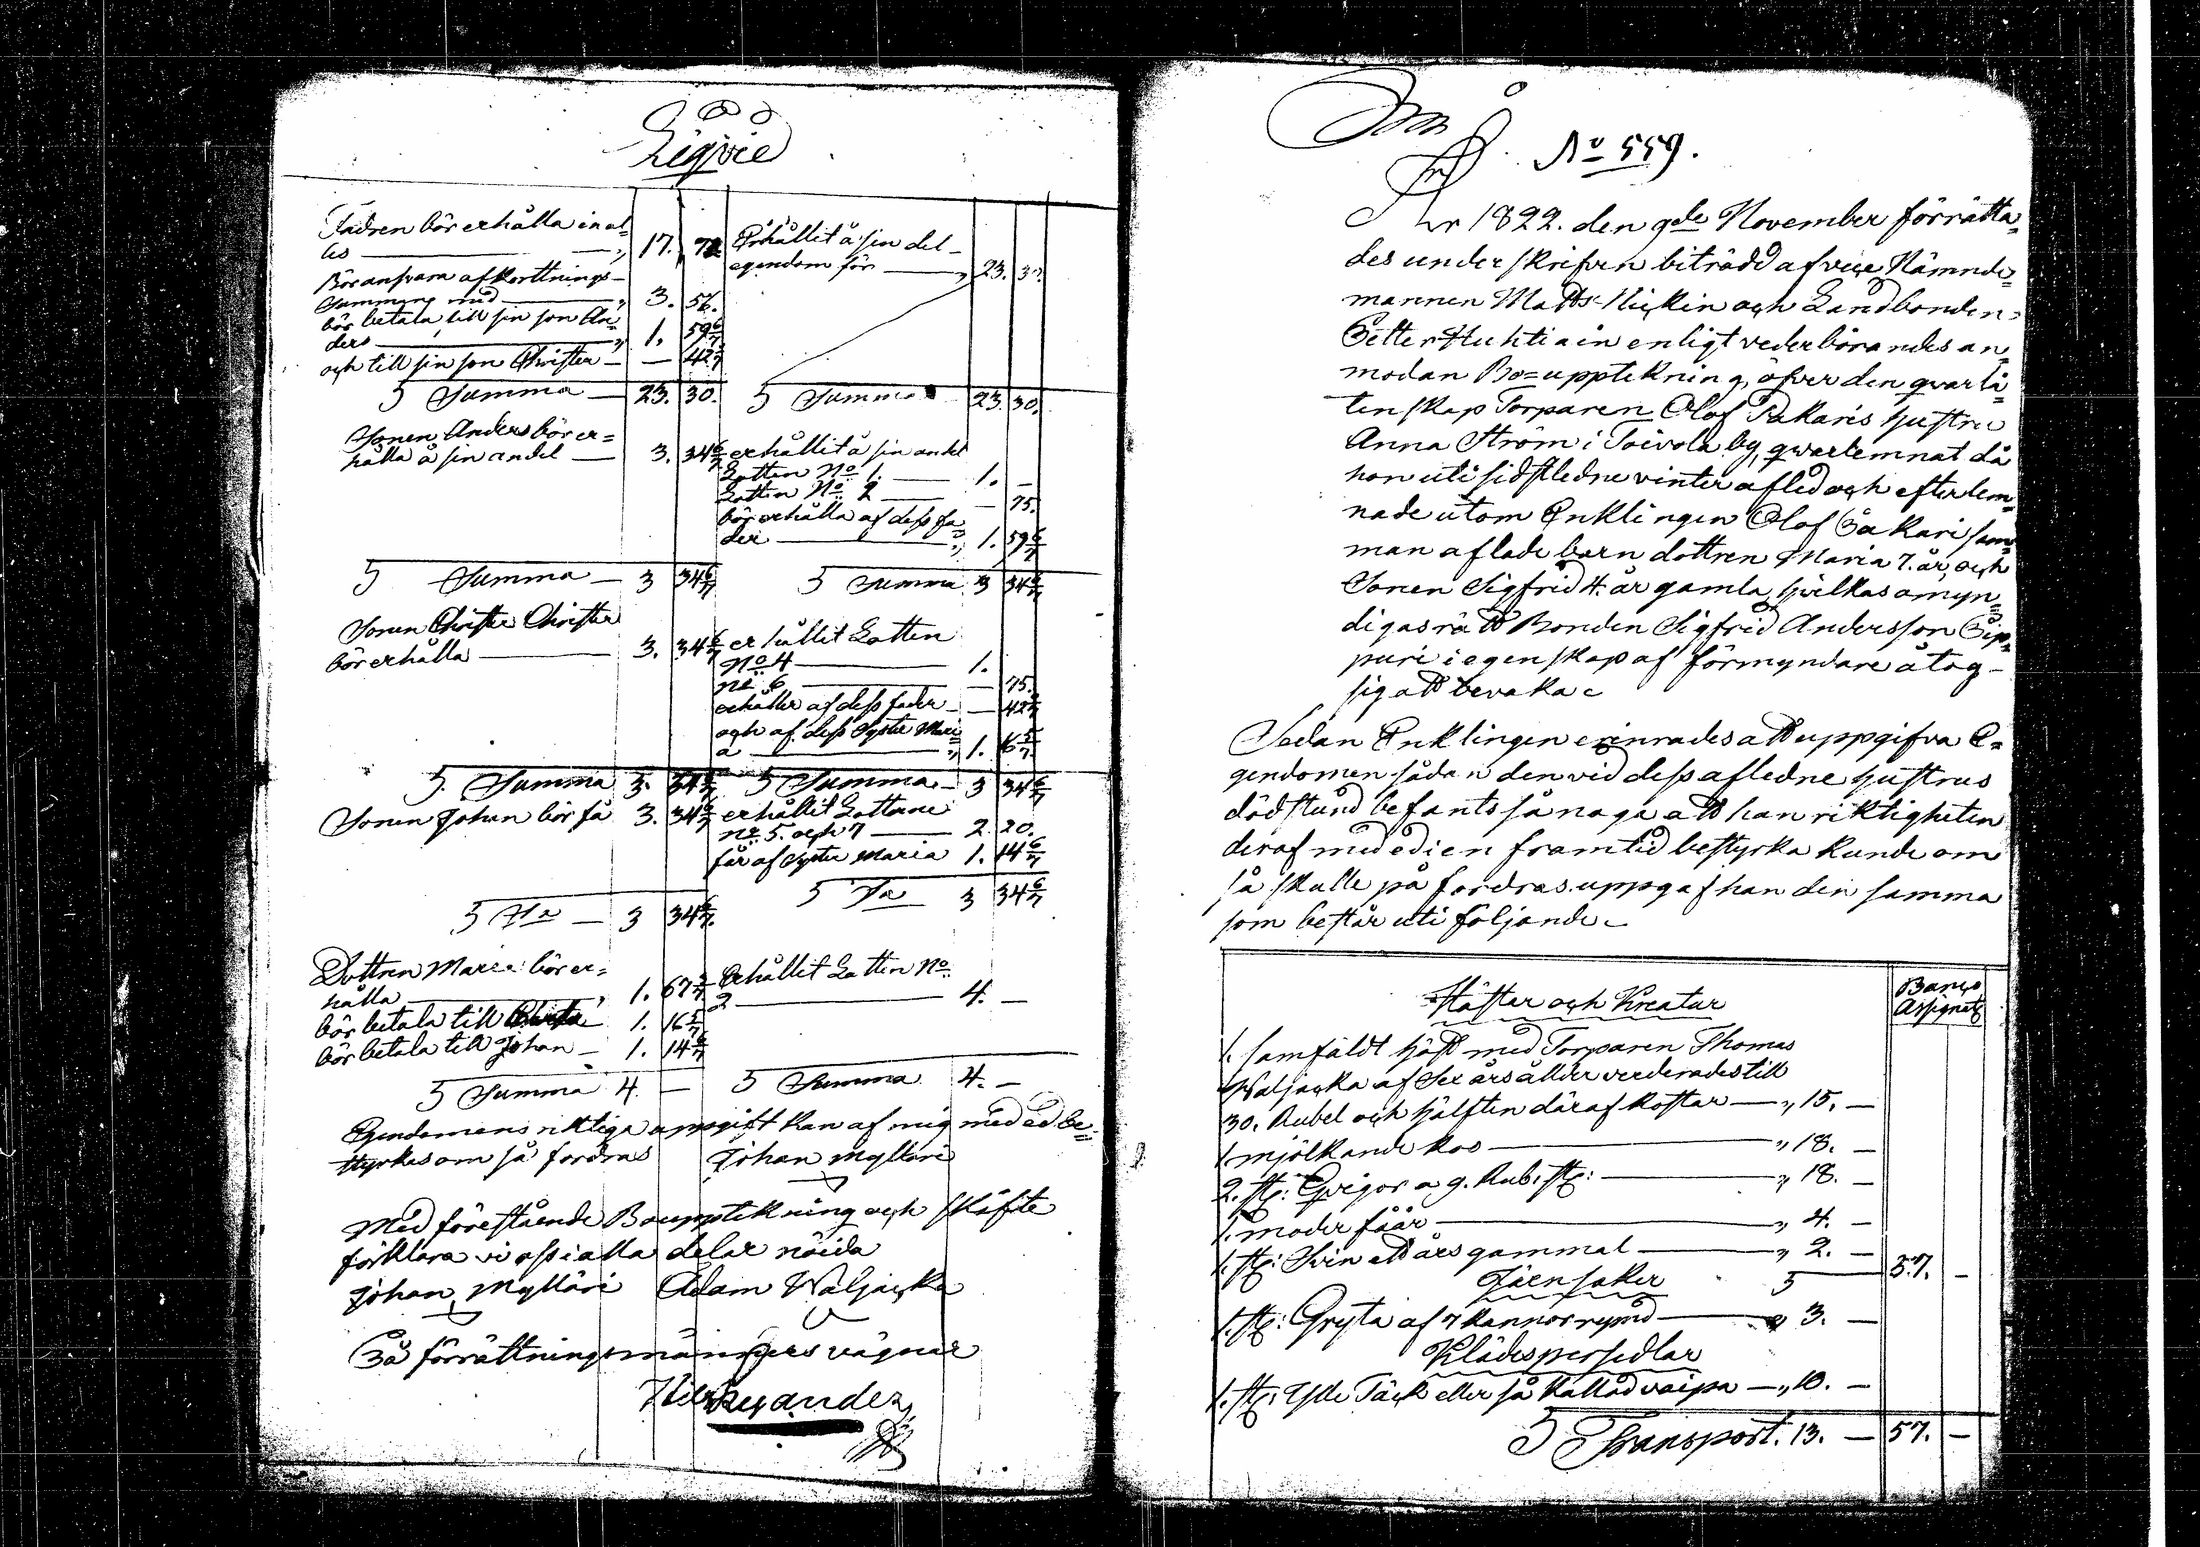 Liqvie
Fadren bör erhålla in al=
les — 17. 72
Bör ansvara afkorttnings-
summing med — 3. 56.
bör betala till sin son An=
ders — 1. 59 6/7
och till sin son Christer — — 42 2/7
Summa — 23. 30.
Erhållit å sin del
egendom för — 23. 30.
Summa 23. 30.
Sonen Anders bör er=
hålla å sin andel — 3. 34 6/7
erhållit å sin andel
Lotten No 1. — 1. —
Lotten No 2 — — 75.
bör erhålla af dess fa=
der — 1. 59 6/7
Summa — 3 34 6/7
Summa 3 34 6/7
Sonen Christer Christer
bör erhålla — 3. 34 6/7
erhållit Lotten
No 4 — 1.
No 6 — — 75.
erhåller af dess fader — — 42 2/7
och af dess Syster Mari=
a — 1. 16 5/7
Summa 3. 34 6/7
Summa — 3 34 6/7
Sonen Johan bör få 3. 34 6/7
erhållit Lottene
No 5. och 7 — 2. 20.
får af Syster Maria 1. 14 6/7
Sa — 3 34 6/7
Sa — 3 34 6/7
Dottren Maria bör er=
hålla — 1. 67 3/7
bör betala till — 1. 16 5/7
bör betala till Johan — 1. 14 6/7
Erhållit Lotten No
2 — 4. —
Summa 4. —
Summa 4. —
Egendomens riktiga uppgift kan af mig med ed be=
styrkas om så fordras Johan Mylläri
Med förestående Bouppteckning och skäfte
förklara vi oss i alla delar nöida
Johan Mylläri Adam Waljacka
På förrättningsmännens vägnar
No 559.
År 1822. den 9de November förrätta=
des underskrifven biträdd af vice Nämnde=
mannen Matts Hickin och Landbonden
Petter Huhtiain enligt vederbörandes an=
modan Bo=uppteckning, öfver den qvarlå=
tenskap Torparen Olof Pakaris hustru
Anna Ström i Toivola by, qvarlemnat då
hon uti sidstledne vinter afled och efterlem=
nade utom Enklingen Olof Pakari sam=
man aflade barn dottren Maria 7. år, och
Sonen Sigfrid 4. år gamla, hvilkas omyn=
digas rätt Bonden Sigfrid Andersson Pip=
puri i egenskap af förmyndare åtog
sig att bevaka
Sedan Enklingen erinrades att uppgifva E=
gendomen sådan den vid dess afledne hustrus
dödstund befants så noga att han riktigheten
deraf med ed i en framtid bestyrka kunde om
så skulle på fordras uppgaf han den samma
som består uti följande
Banco
Assignat
Hästar och Kreatur
1. samfäldt häst med Torparen Thomas
Waljacka af Sex års ålder verderades till
30. Rubel och hälften däraf kostar — 15. —
1. mjölkande koo — 18. —
2. st: Qvigor a 9. Rub. st: — 18. —
1. moder fåår — 4. —
1. st: Svin ett års gammal — 2. — 57. —
Järnsaker
1. st: Gryta af 7 kannors rymd — 3. —
Klädespersedlar
1. st: Ylle Täck eller så kallad vaipa — 10. —
Transport. 13. — 57. —